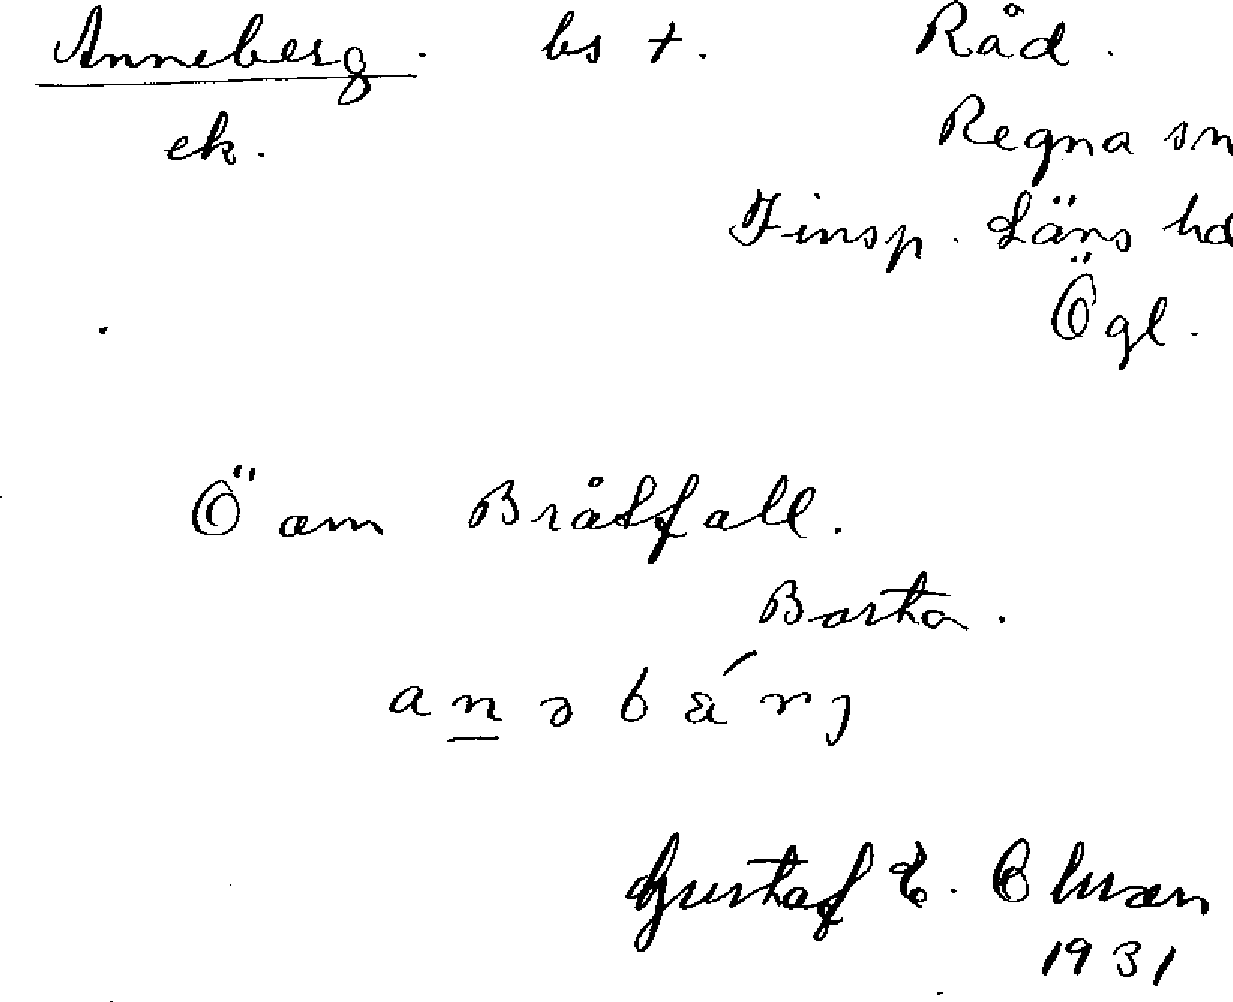 Anneberg. bs +. Råd.
ek. Regna sn
Finsp. Läns hd
Ögl.
Ö am Bråtfall.
Borta.
anəbä́rj
Gustaf E. Olsson
1931